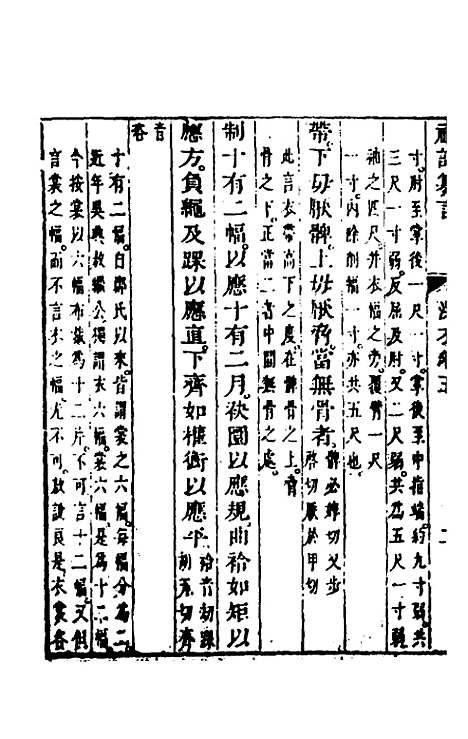 禮記纂言
寸肘至掌後一尺一寸掌後至中指端約九寸弱共
三尺一寸弱反屈及肘又二尺弱共爲五尺一寸弱
袖之四尺并衣幅之旁覆臂一尺
一寸内除削幅一寸亦共五尺也
帶下毋厭髀上毋厭脅當無骨者髀必婢切又步
啓切厭於甲切
此言衣帶高下之度在髀骨之上脅
骨之下正當二者中間無骨之處
制十有二幅以應十有二月袂圜以應規曲袷如矩以
應方負繩及踝以應直下齊如權衡以應平袷音刧踝
胡瓦切齊
音咨
十有二幅自鄭氏以來皆謂裳之六幅每幅分爲二
近年吳興敖繼公獨謂衣六幅裳六幅是爲十二幅
今按裳以六幅布裁爲十二片不可言十二幅又但
言裳之幅而不言衣之幅尤不可敖說良是衣裳各